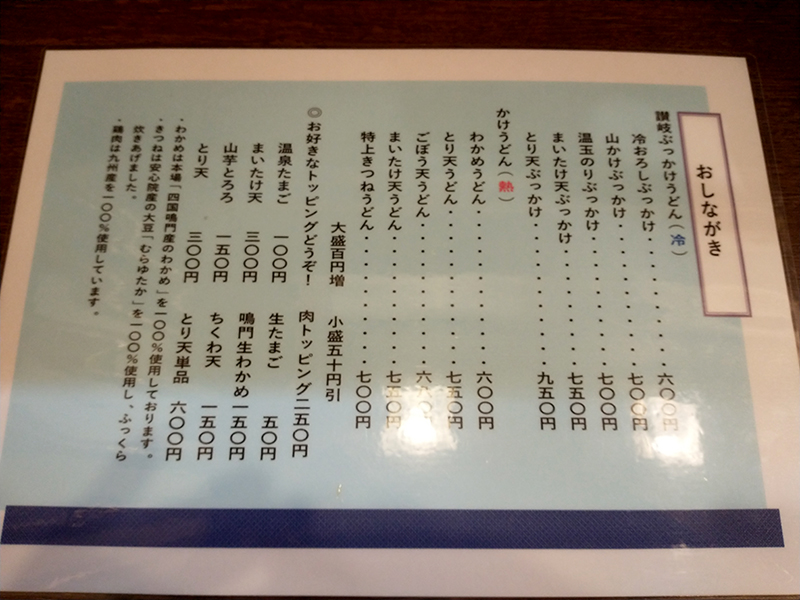 おしながき
讃岐ぶっかけうどん（冷）・・・・・・・・・六〇〇円
冷おろしぶっかけ・・・・・・・・・七〇〇円
山かけぶっかけ・・・・・・・・・七〇〇円
温玉のりぶっかけ・・・・・・・・・七五〇円
まいたけ天ぶっかけ・・・・・・・・・七五〇円
とり天ぶっかけ・・・・・・・・・九五〇円
かけうどん（熱）
わかめうどん・・・・・・・・・六〇〇円
とり天うどん・・・・・・・・・七五〇円
ごぼう天うどん・・・・・・・・・円
まいたけ天うどん・・・・・・・・・七五〇円
特上きつねうどん・・・・・・・・・七〇〇円
大盛百円増　小盛五十円引
◎お好きなトッピングどうぞ！
肉トッピング二五〇円
温泉たまご　一〇〇円　生たまご　五〇円
まいたけ天　三〇〇円　鳴門生わかめ一五〇円
山芋とろろ　一五〇円　ちくわ天　一五〇円
とり天　三〇〇円　とり天単品　六〇〇円
・わかめは本場「四国鳴門産のわかめ」を一〇〇％使用しております。
・きつねは安心院産の大豆「むらゆたか」を一〇〇％使用し、ふっくら
炊きあげました。
・鶏肉は九州産を一〇〇％使用しています。